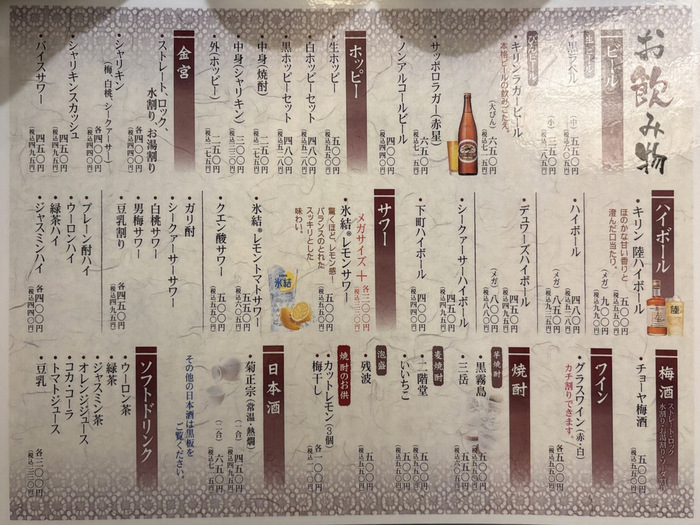 お飲み物
ビール
生ビール
・黒ラベル
(中) 五五〇円
(小) 三五〇円
びんビール
・キリンラガービール
本格ビールの飲みごたえ。
(大びん) 六五〇円
(税込七一五円)
・サッポロラガー(赤星)
六五〇円
(税込七一五円)
・ノンアルコールビール
四〇〇円
(税込四四〇円)
ホッピー
・生ホッピー
五五〇円
・白ホッピーセット
四八〇円
・黒ホッピーセット
四八〇円
・中身(焼酎)
・中身(シャリキン)
・外(ホッピー)
二五〇円
(税込二七五円)
金宮
・ストレート、ロック、
水割り、お湯割り
各四五〇円
(税込四九五円)
・シャリキン
(梅、白桃、シークアーサー)
各四〇〇円
(税込四四〇円)
・シャリキンスカッシュ
四五〇円
(税込四九五円)
・バイスサワー
四五〇円
(税込四九五円)
ハイボール
・キリン 陸ハイボール
ほのかな甘い香りと、
澄んだ口当たり。
五五〇円
(メガ) 九〇〇円
・ハイボール
四八〇円
(メガ) 八五〇円
・デュワーズハイボール
四五〇円
(メガ) 八〇〇円
・シークアーサーハイボール
四五〇円
(税込四九五円)
・下町ハイボール
四〇〇円
(税込四四〇円)
サワー
メガサイズ+各三〇〇円
(税込三三〇円)
・氷結®レモンサワー
五〇〇円
(税込五五〇円)
驚くほど、レモン感!
バランスのとれた
スッキリとした
味わい。
氷結
・氷結®レモントマトサワー
五五〇円
(税込六〇五円)
・クエン酸サワー
五〇〇円
(税込五五〇円)
・ガリ酎
・シークアーサーサワー
・白桃サワー
・男梅サワー
・豆乳割り
各四五〇円
(税込四九五円)
・プレーン酎ハイ
・ウーロンハイ
・緑茶ハイ
・ジャスミンハイ
各四〇〇円
(税込四四〇円)
梅酒
ストレート、ロック、
水割り、お湯割り、ソーダ割り
・チョーヤ梅酒
五〇〇円
(税込五五〇円)
ワイン
・グラスワイン(赤・白)
カチ割りできます。
各五〇〇円
(税込五五〇円)
焼酎
芋焼酎
・黒霧島
五〇〇円
(税込五五〇円)
・三岳
五五〇円
(税込六〇五円)
麦焼酎
・二階堂
五〇〇円
(税込五五〇円)
・いいちこ
五〇〇円
(税込五五〇円)
泡盛
・残波
五〇〇円
(税込五五〇円)
焼酎のお供
・カットレモン(3個)
・梅干し
各一〇〇円
(税込一一〇円)
日本酒
・菊正宗(常温・熱燗)
(一合) 四五〇円
(税込四九五円)
(二合) 六五〇円
(税込七一五円)
その他の日本酒は黒板を
ご覧ください。
ソフトドリンク
・ウーロン茶
・緑茶
・ジャスミン茶
・オレンジジュース
・コカ・コーラ
・トマトジュース
・豆乳
各三〇〇円
(税込三三〇円)